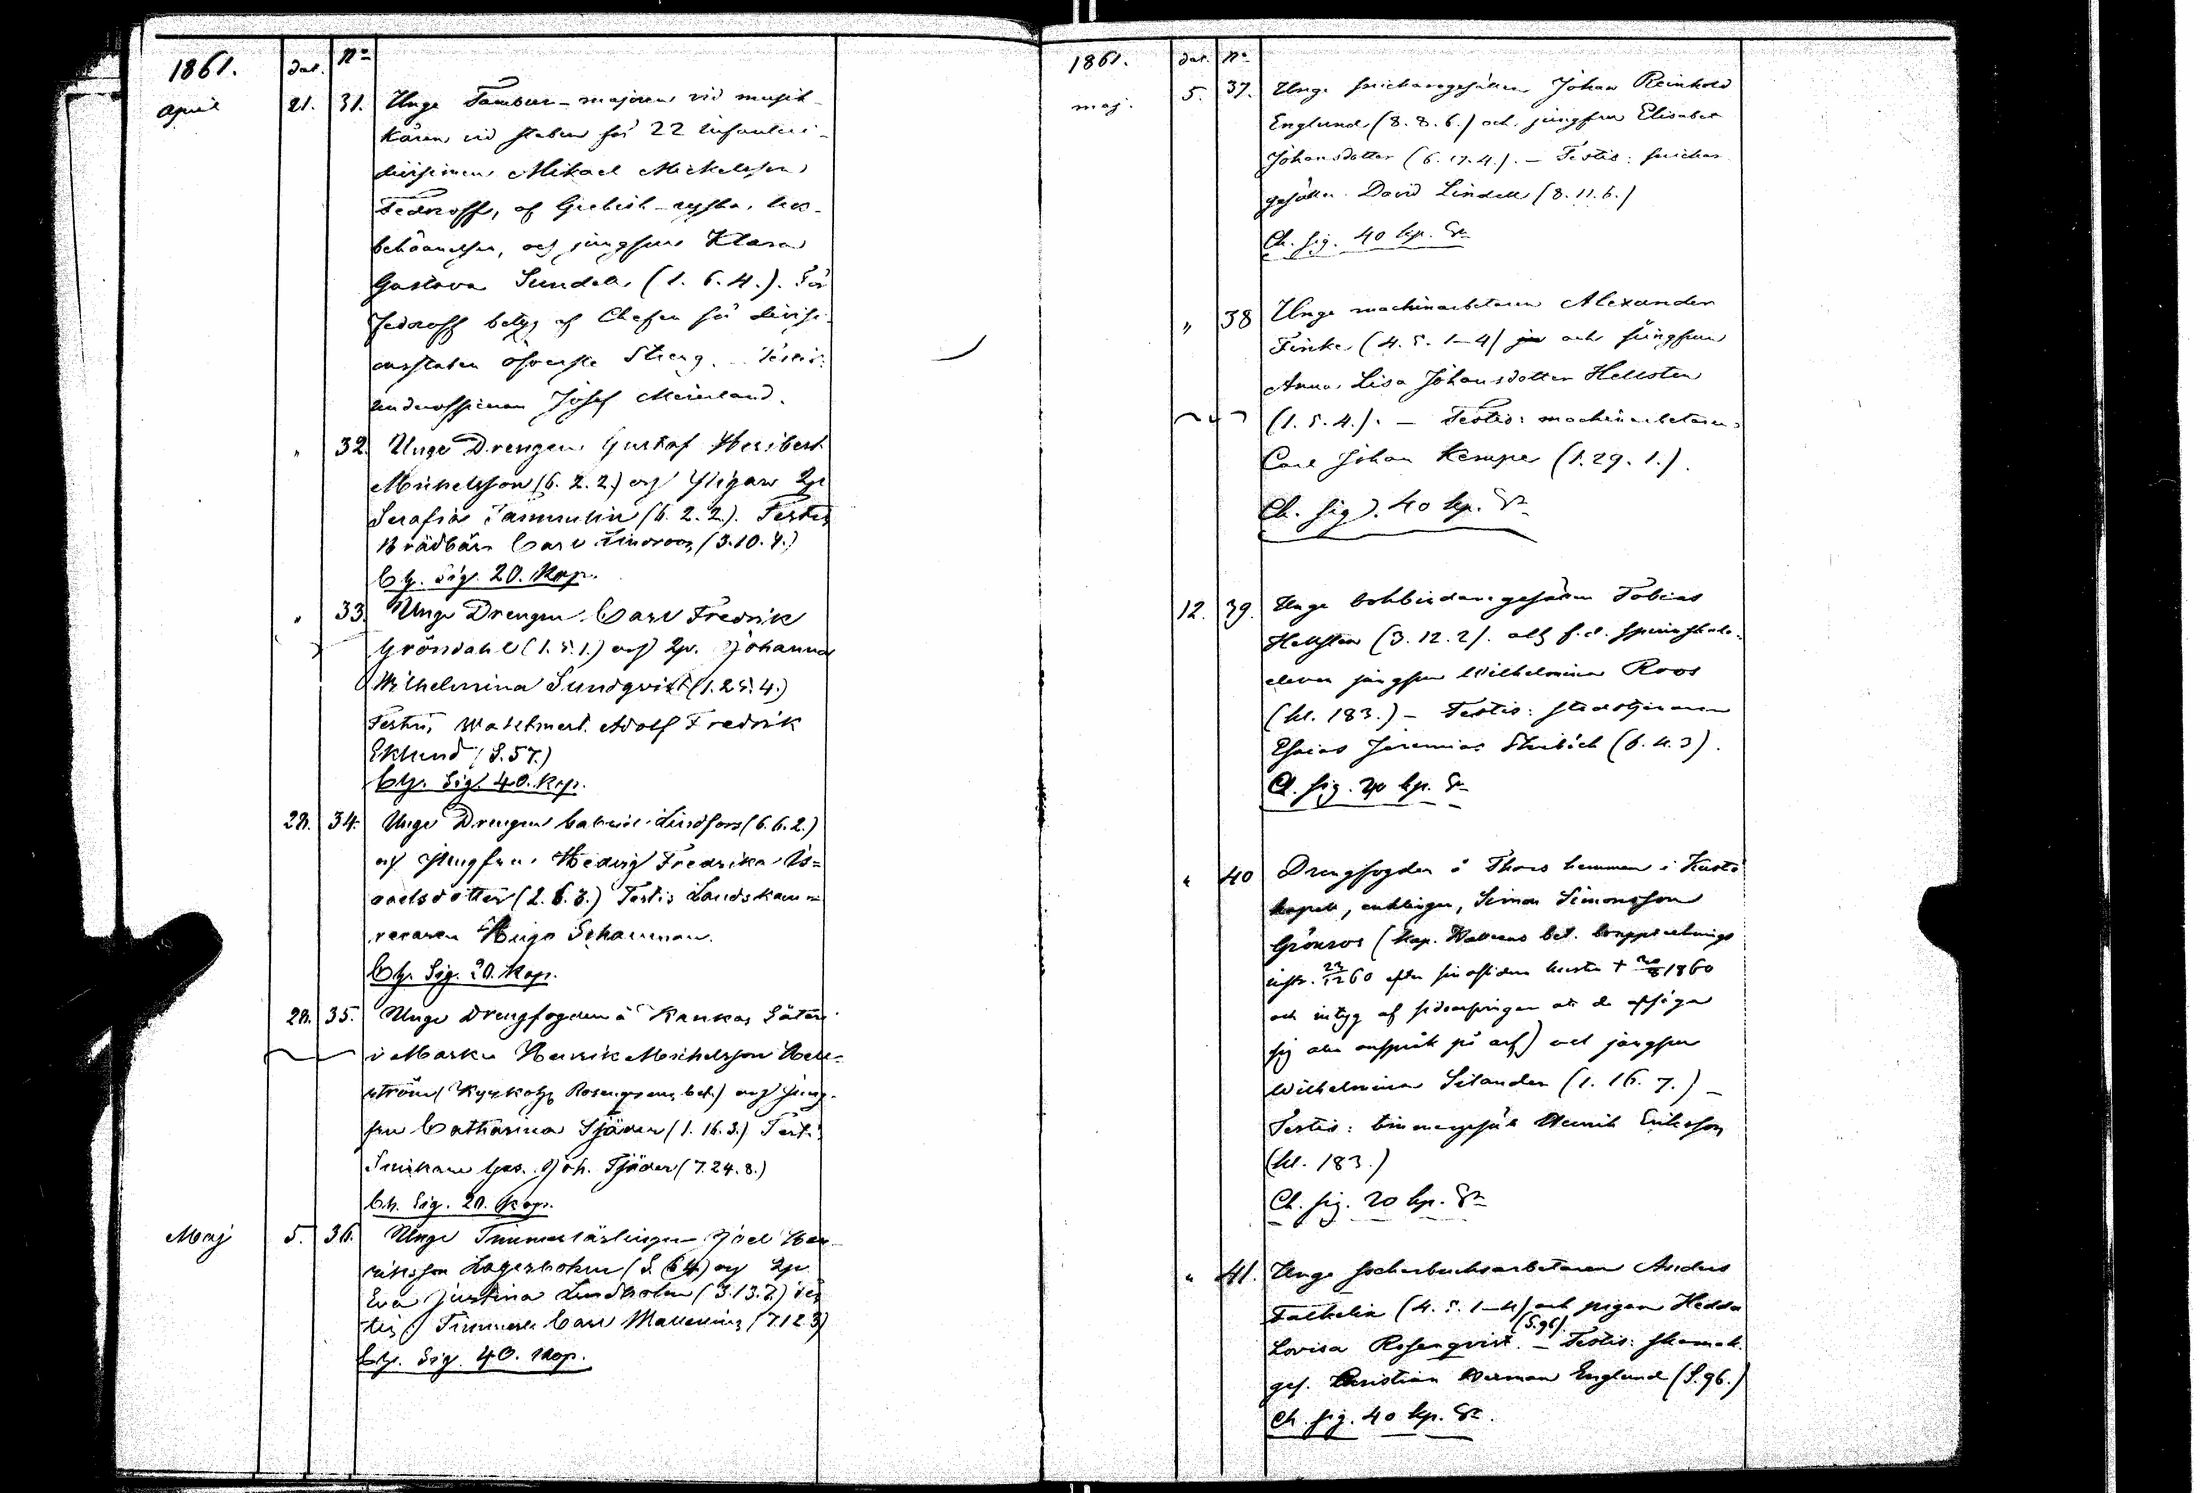 1861.
dat. No
april 21. 31. Unge Tambur-majoren vid musik-
kåren vid staben för 22 infanteri-
divisionen Mikael Mickelsson
Fedroff, af Grekisk-ryska
och jungfrun Klara
Gustava Sundell (1. 6. 4.). För
Fedroff betyg af Chefen för divisi-
onsstaben öfverste Streng. Testis:
underofficeren Josef
" 32. Unge Drengen Gustaf Heribert
Michelsson (6. 2. 2.) och Pigan
Serafia Tammelin (6. 2. 2.). Testis
Carl Lindroos (3. 10. 4.)
Ch. Sig. 20. Kop.
" 33. Unge Drengen Carl Fredrik
Gröndahl (1. 5. 1.) och Johanna
Wilhelmina Sundqvist (1. 25. 4.)
Testis, Adolf Fredrik
Eklund (S. 57.)
Ch. Sig. 40. kop.
28. 34. Unge Drengen Gabriel Lindfors (6. 6. 2.)
och Jungfrun Hedvig Fredrika Is=
aaksdotter (2. 6. 3.) Testis Landskam=
reraren Hugo Schauman.
Ch. Sig. 20. Kop.
28. 35. Unge Drengfogden å Kankas Säteri
i Masku Henrik Michelsson Hell=
ström bet.) och Jung-
fru Catharina Tjäder (1. 16. 3.) Testis
Snickare Ges. Joh. Tjäder (7. 24. 8.)
Ch. Sig. 20. Kop.
Maj 5. 36. Unge Timmerlärlingen Joel Hen-
riksson Lagerbohm (S. 64) och
Eva Justina Lindholm (3. 13. 7.) Tes
tis, Carl (7. 12. 3)
Ch. Sig. 40. Kop.
1861. dat. No
maj. 5. 37. Unge snickaregesällen Johan Reinhold
Englund (8. 8. 6.) och jungfrun Elisabet
Johansdotter (6. 17. 4.). — Testis: snickar
gesällen David Lindell (8. 11. 6.)
Ch. sig. 40 kp. Sr
" 38 Unge machinarbetaren Alexander
Finke (4. 5. 1-4) och jungfrun
Anna Lisa Johansdotter Hellsten
(1. 5. 4.). — Testis: machinarbetaren
Carl Johan Kemper (1. 29. 1.).
Ch. sig. 40 kp. Sr
12. 39. Unge bokbindaregesällen Tobias
Hellsten (3. 12. 2). och f. d. spinnskole-
eleven jungfrun Wilhelmina Roos
(kl. 183.) — Testis: stadstjenaren
Esaias Jeremias (6. 4. 3).
Ch. sig. 20 kp. Sr
" 40 Drengfogden å Thors hemman i Kustö
kapell, enklingen, Simon Simonsson
Grönroos (kap. bet. boupptecknings
instr. 22/12 60 efter sin aflidna hustru + 1860
och intyg af att de afsäga
sig allt anspråk på arf) och jungfrun
Wilhelmina Silander (1. 16. 7.) —
Testis: timmergesäll Henrik Eriksson
(kl. 183.)
Ch. sig. 20 kp. Sr
" 41. Unge sockerbruksarbetaren Anders
(4. 5. 1-4) och pigan Hedda
(S. 96)
Lovisa Rosenqvist. — Testis: skomak.
ges. Christian Herman Englund (S. 96.)
Ch. sig. 40 kp. Sr.